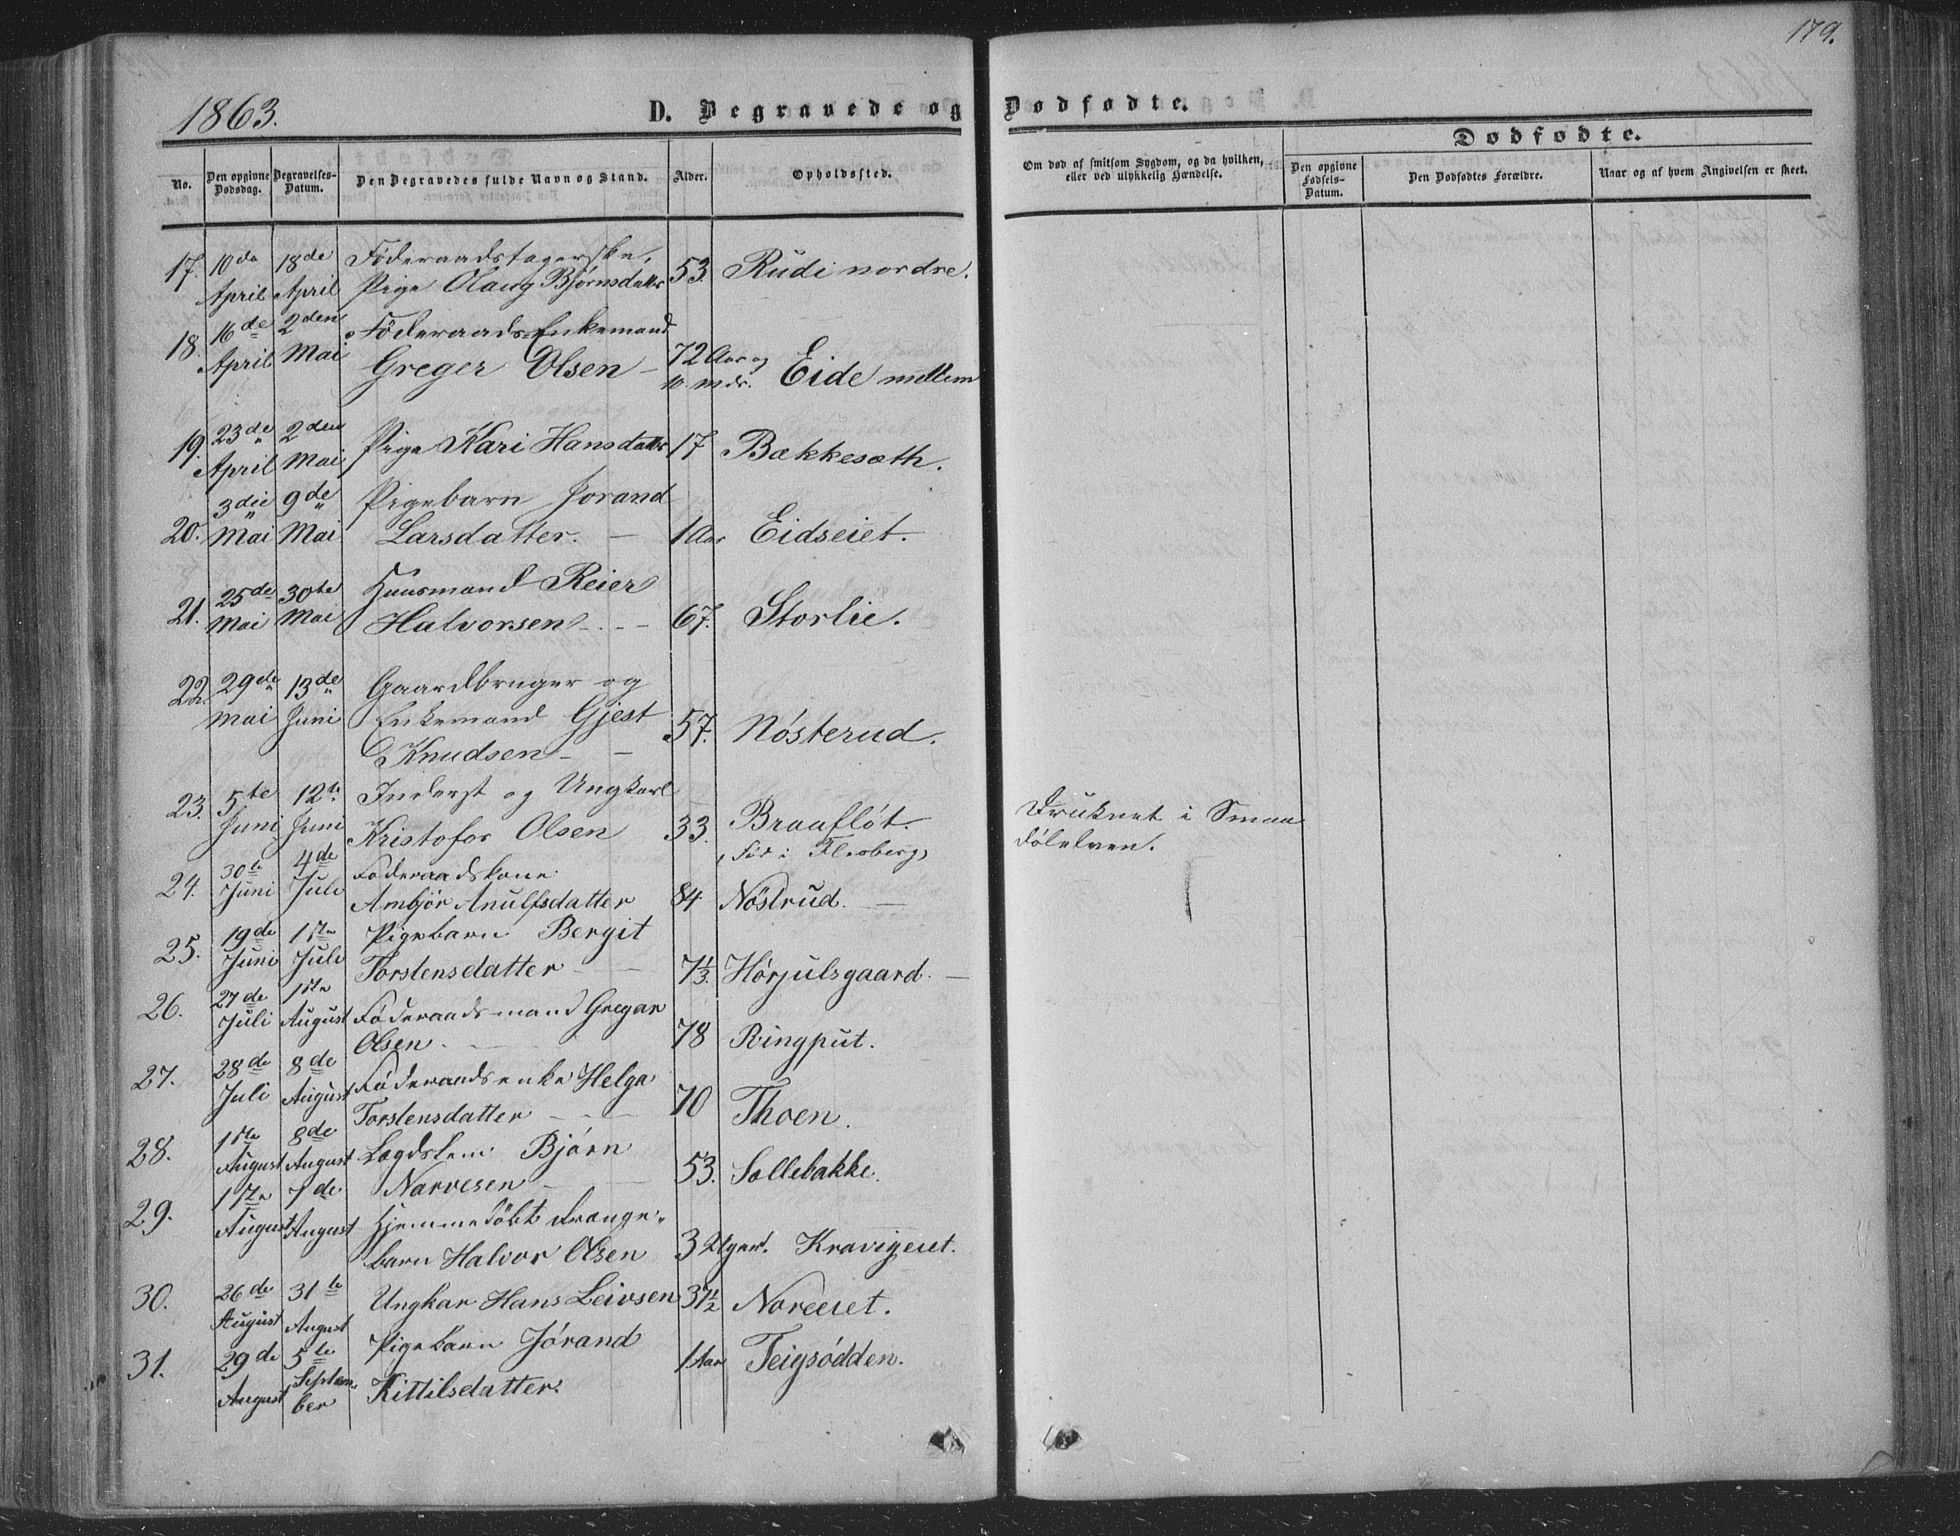 179.
1863.
D. Begravede og Dødfødte.
Dødfødte.
No.
Den opgivne Dødsdag.
Begravelses-Datum.
Den Begravedes fulde Navn og Stand.
Alder.
Opholdssted.
Om død af smitsom Sygdom, og da hvilken,
eller ved ulykkelig Hændelse.
Den opgivne Fødsels-Datum.
Den Dødfødtes Forældre.
Naar og af hvem Angivelsen er skeet.
17. 10de April 18de April Föderaadstagerske,
Pige Olaug Bjørnsdatter 53. Rudi nordre.
18. 16de April 2den Mai Föderaads Enkemand
Greger Olsen – 72 Aar og 10 mdr. Eide mellem
19. 23de April 2den Mai Pige Kari Hansdatter 17 Bækkesæth.
20. 3die Mai 9de Mai Pigebarn Jorand
Larsdatter. – 1 Aar Eidseiet.
21. 25de Mai 30te Mai Huusmand Reier
Halvorsen – 67. Storlie.
22. 29de Mai 13de Juni Gaardbruger og
Enkemand Gjest
Knudsen – 57. Nósterud.
23. 5te Juni 12te Juni Inderst og Ungkarl
Kristofor Olsen 33. Braaflót.
(Föd i Flesberg)
Druknet i Smaa
dölelven.
24. 30te Juni 4de Juli Föderaadskone
Ambjör Anulfsdatter 84 Nöstrud. –
25. 19de Juni 1ste Juli Pigebarn Bergit
Torstensdatter – 7 1/3. Hørjulsgaard. –
26. 27de Juli 1ste August Föderaadsmand Gregar
Olsen. 78 Ringput.
27. 28de Juli 8de August Föderaadsenke Helga
Torstensdatter – 70 Thoen.
28. 1ste August 8de August Lægdslem Bjórn
Narvesen – 53. Sollebakke.
29. 1ste August 7de August Hjemmedöbt Drænge-
barn Halvor Olsen 3 Uger. Kravigeiet.
30. 26de August 31te August Ungkar Hans Leivsen 37 1/2 Noreeiet.
31. 29de August 5te September Pigebarn Jórand
Kittilsdatter. 1 Aar Teigsódden.